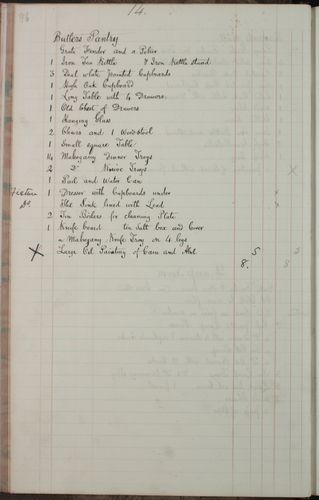 14.
Butlers Pantry
Grate Fender and a Poker
1 Iron Tea Kettle & Iron Kettle stand
3 Deal white painted Cupboards
1 High Oak Cupboard
1 Long Table with 4 Drawers
1 Old Chest of Drawers
1 Hanging Glass
2 Chairs and 1 Woodstool
1 Small square Table
14 Mahogany Dinner Trays
2 Do Trays
1 Pail and Water Can
Fixture 1 Dresser with Cupboards under
Do. Sink lined with Lead
2 Tin Boilers for cleaning Plate
1 Knife board tin salt box and Cover
a Mahogany Knife Tray on 4 legs
X Large Oil Painting of Cain and Abel 5
8.